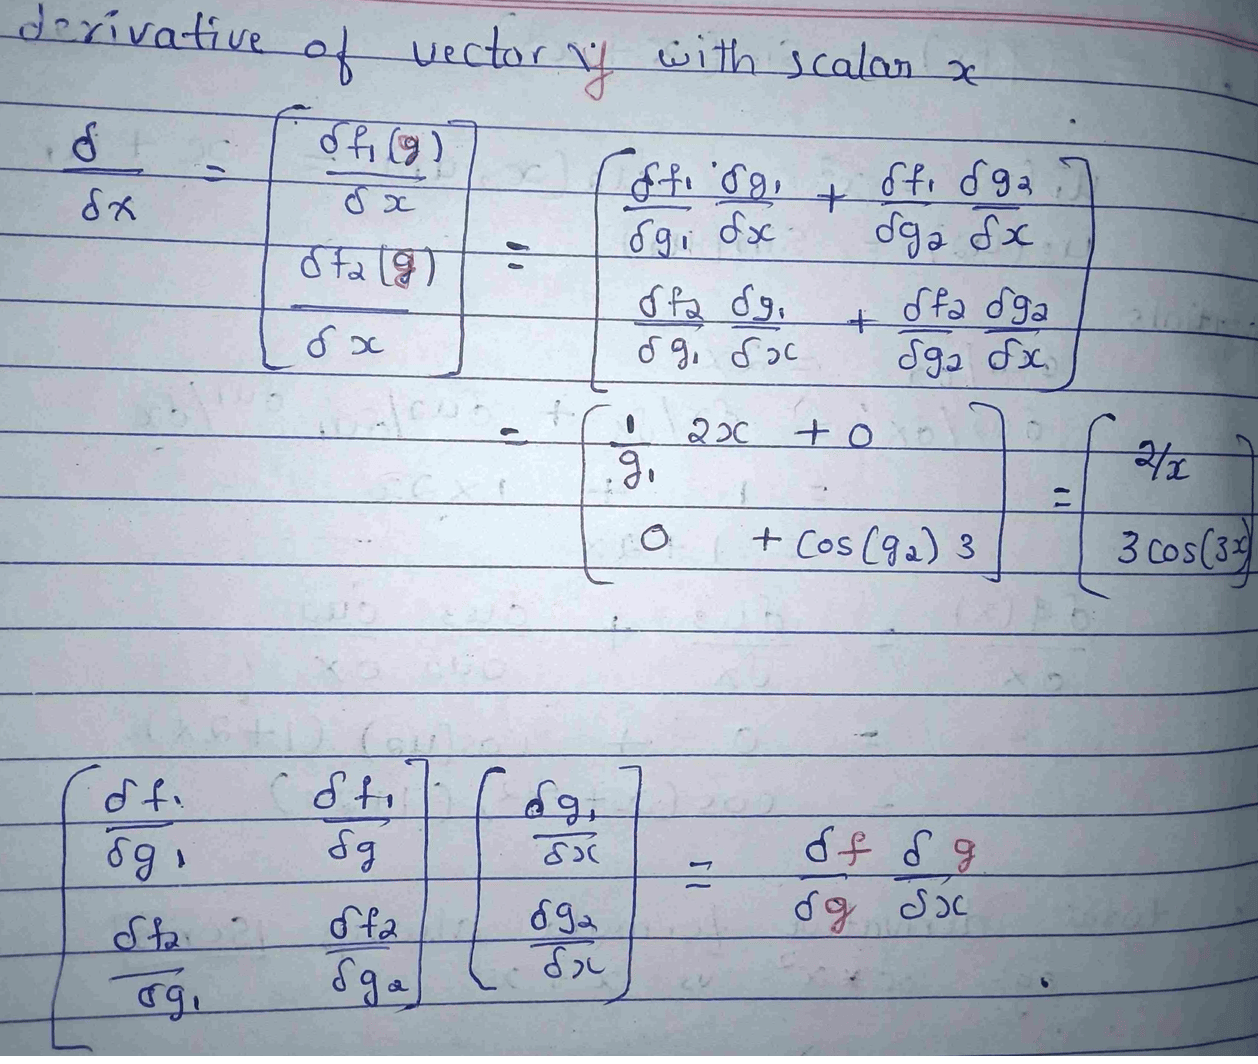 derivative of vector y with scalar x
δ/δx = [ δf₁(g)/δx ; δf₂(g)/δx ] = [ δf₁/δg₁ δg₁/δx + δf₁/δg₂ δg₂/δx ; δf₂/δg₁ δg₁/δx + δf₂/δg₂ δg₂/δx ]
= [ 1/g₁ 2x + 0 ; 0 + cos(g₂) 3 ] = [ 2/x ; 3cos(3x) ]
[ δf₁/δg₁ δf₁/δg ; δf₂/δg₁ δf₂/δg₂ ] [ δg₁/δx ; δg₂/δx ] = δf/δg δg/δx